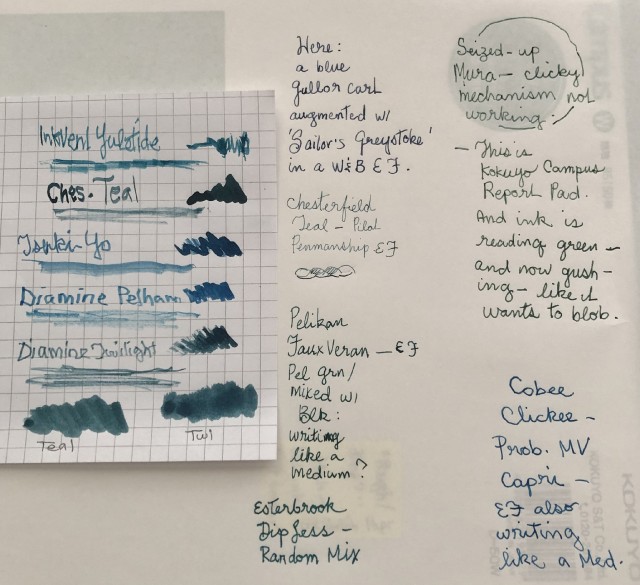 Inkvent Yuletide
Ches. Teal
Tsuki-Yo
Diamine Pelham
Diamine Twilight
Teal
Twi
Here:
a blue
gullor cart
augmented w/
'Sailor's Greystoke'
in a W&B EF.
Chesterfield
Teal - Pilot
Penmanship EF
Pelikan
Faux Veran - EF
Pel grn/
Mixed w/
Blk:
writing
like a
medium?
Esterbrook
Dip Less -
Random Mix
Seized-up
Mura - clicky
mechanism not
working.
- This is
Kokuyo Campus
Report Pad.
And ink is
reading green -
and now gush-
ing - like it
wants to blob.
Cobee
Clickee -
Prob. MV
Capri -
EF also
writing
like a Med.
Campus
KOKUYO